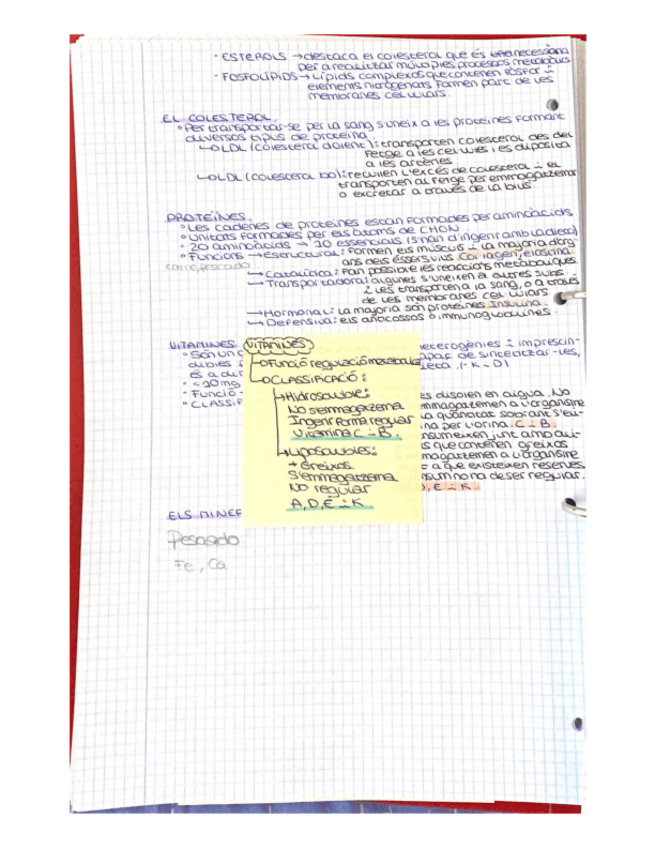 · ESTEROLS → destaca el colesterol que és necessària
per a realitzar múltiples processos metabòlics
· FOSFOLÍPIDS → Lípids complexos que contenen fòsfor i
elements nitrogenats. Formen part de les
membranes cel·lulars.
EL COLESTEROL.
° Per transportar-se per la sang s'uneix a les proteïnes formant
diversos tipus de proteïna.
LDL (colesterol dolent): transporten colesterol des del
fetge a les cèl·lules i es diposita
a les artèries
(colesterol bo): recullen l'excés de colesterol i el
transporten al fetge per emmagatzemar
o excretar a través de la bilis
PROTEÏNES.
° Les cadenes de proteïnes estan formades per aminoàcids
° Unitats formades per els àtoms de CHON
° 20 aminoàcids → 10 essencials (s'han d'ingerir amb la dieta)
° Funcions → Estructural: Formen els músculs i la majoria d'òrg-
ans dels éssers vius. Col·lagen, elastina.
carne, pescado
→ Catalítica: Fan possible les reaccions metabòliques
→ Transportadora: algunes s'uneixen a altres subs
i les transporten a la sang, o a través
de les membranes cel·lulars
→ Hormonal: la majoria són proteïnes. Insulina.
→ Defensiva: els anticossos o immunoglobulines.
VITAMINES.
° Són un c
heterogènies i imprescin-
dibles
apaç de sintetitzar-les,
és a dir
ieta. (- K - D)
° <20mg
° Funció -
° CLASSIF
VITAMINES
Funció regulació metabòlica
CLASSIFICACIÓ:
→ Hidrosolubles:
No s'emmagatzema
Ingerir forma regular
Vitamina C i B.
→ Liposolubles:
+ Greixos
S'emmagatzema
NO regular
A, D, E i K
es disolen en aigua. No
mmagatzemen a l'organisme
la quantitat sobrant s'eli-
ina per l'orina. C i B.
nsumeixen junt amb ali-
s que contenen greixos
magatzemen a l'organisme
t a que existeixen reserves
nsum no ha de ser regular.
D, E i K
ELS MINER
Pescado
Fe, Ca